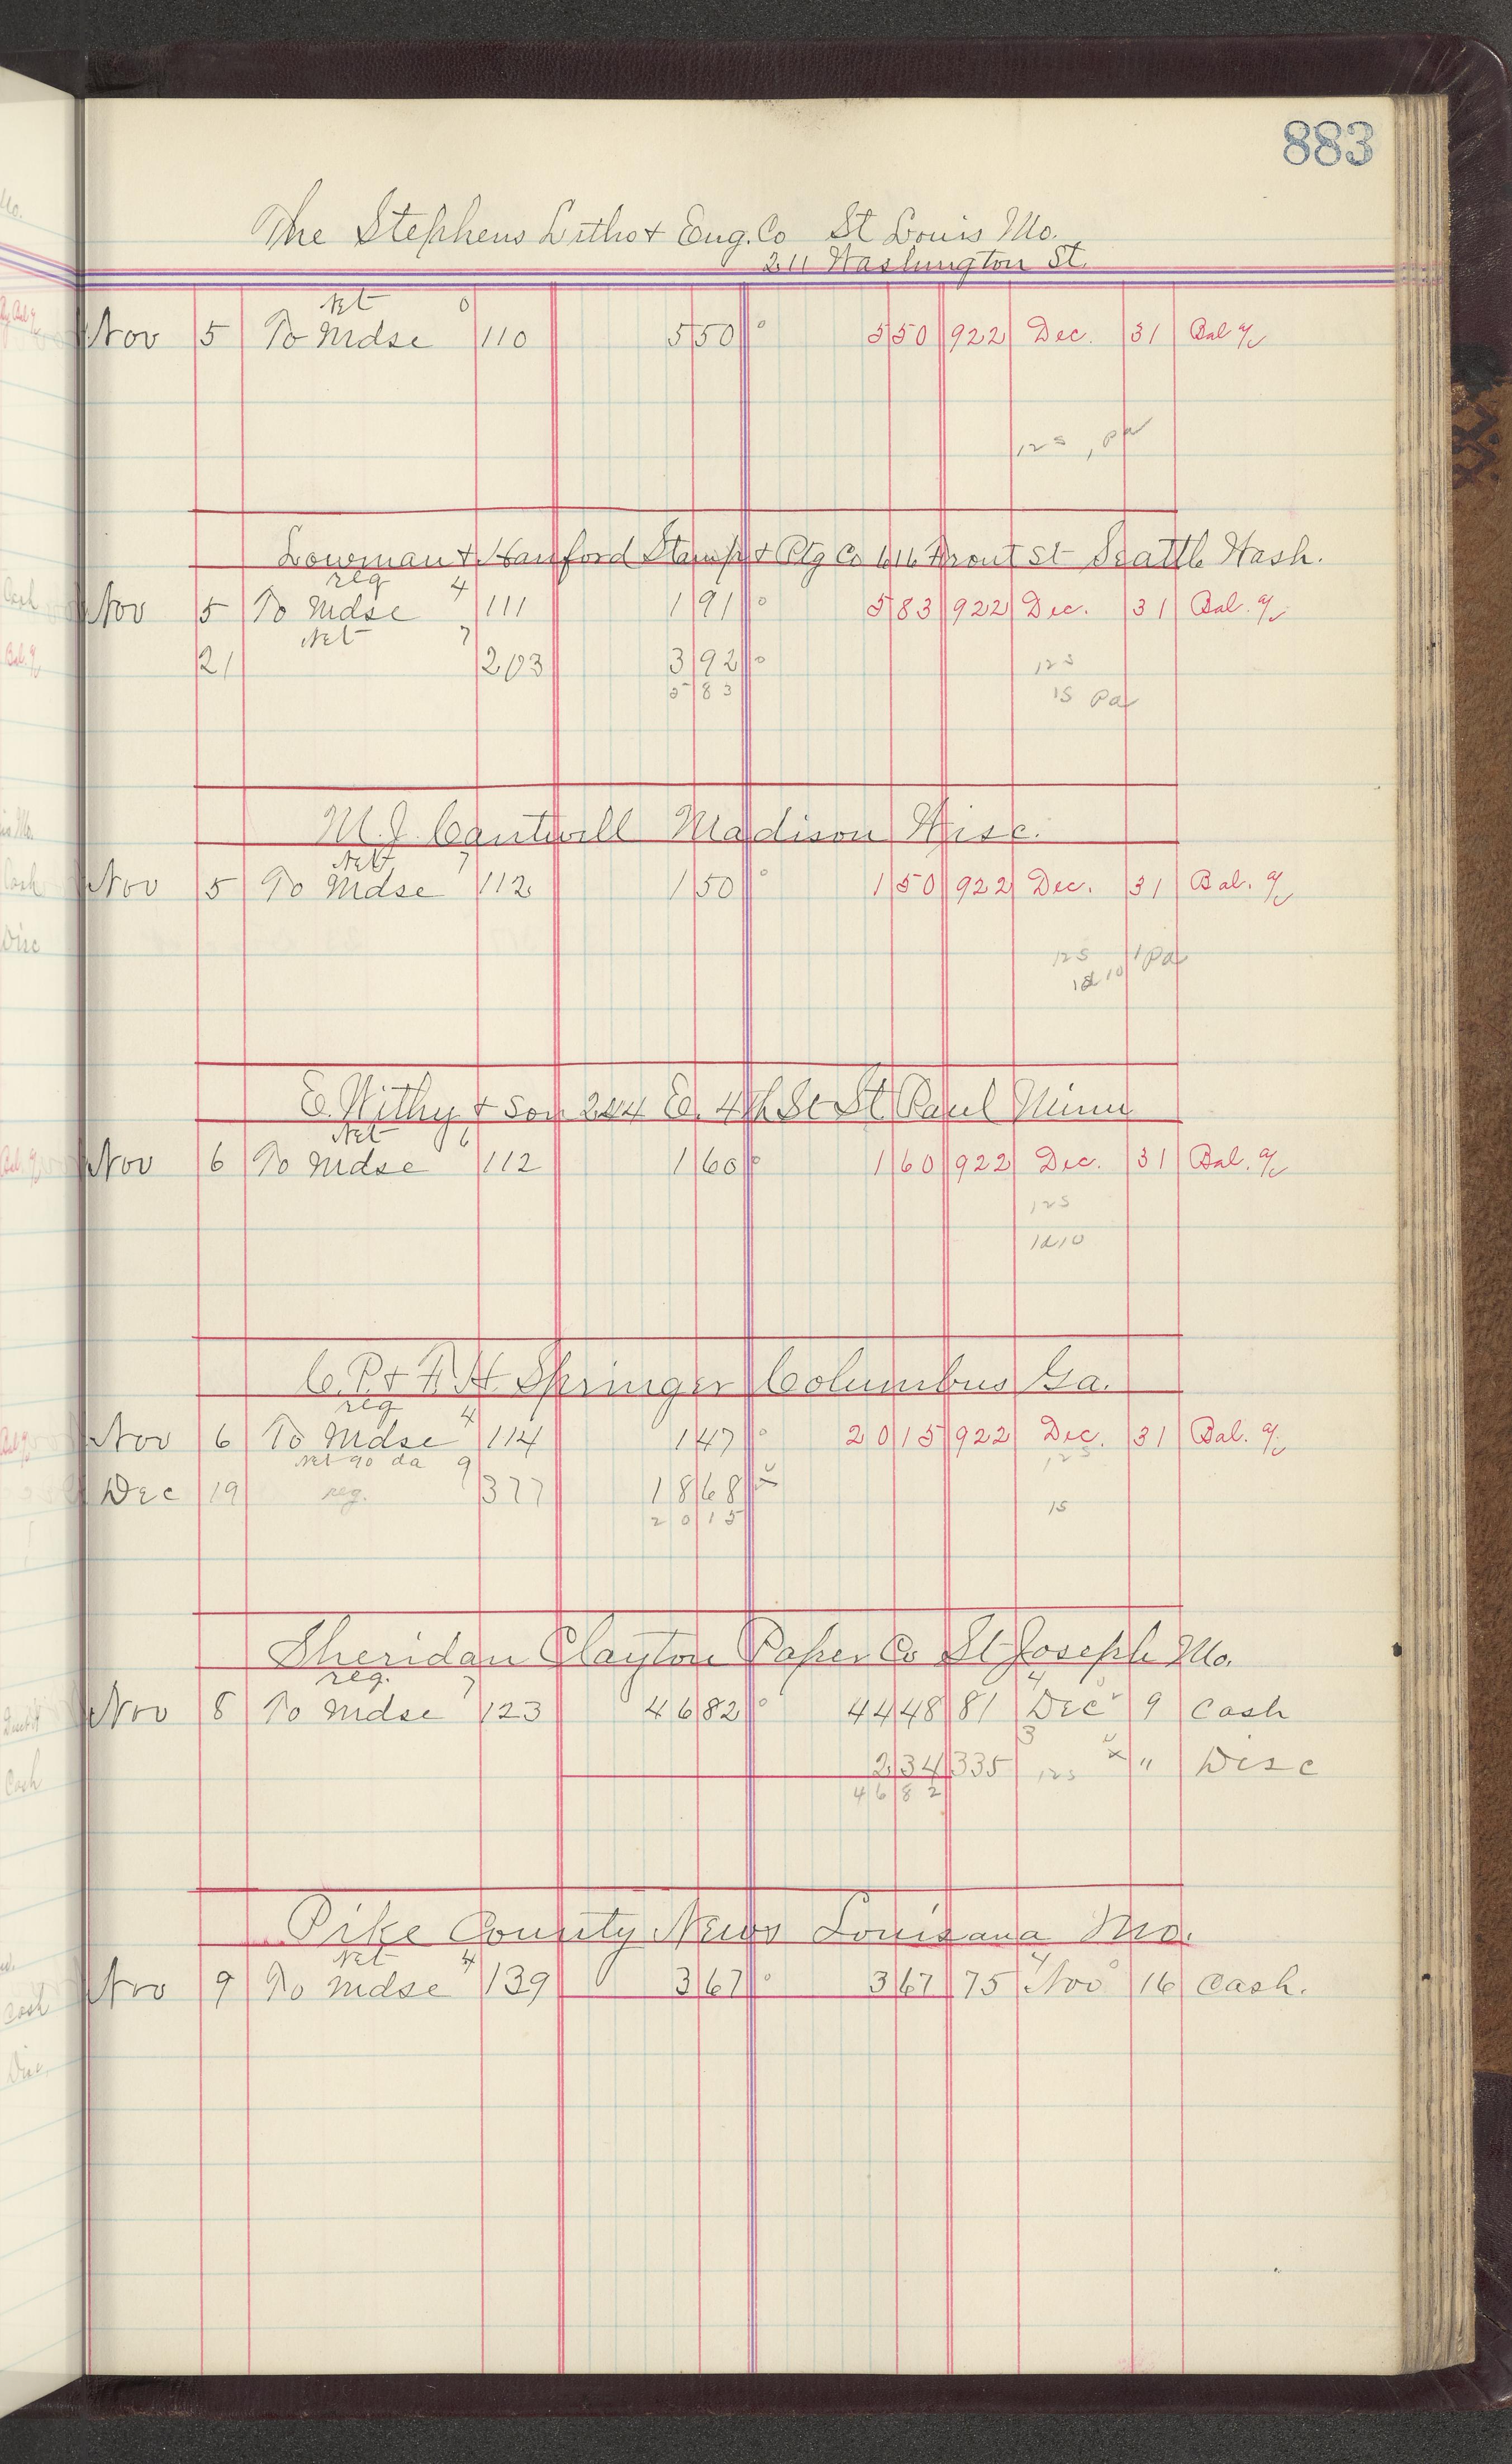 883
The Stephens Litho & Eng. Co St Louis Mo.
211 Washington St.
Net 0
Nov 5 To Mdse 110 5 50 0 5 50 922 Dec. 31 Bal a/c
125, pa
Lowman & Hanford Stamp & Ptg Co 616 Front St Seattle Wash.
reg 4
Nov 5 To Mdse 111 1 91 0 5 83 922 Dec. 31 Bal. a/c
Net 7
21 203 3 92 0 125
5 83 15 pa
M. J. Cantwell Madison Wisc.
Net 7
Nov 5 To Mdse 112 1 50 0 1 50 922 Dec. 31 Bal. a/c
125 1 pa
1d 10
E. Withy & Son 244 E. 4th St St Paul Minn
Net 6
Nov 6 To Mdse 112 1 60 0 1 60 922 Dec. 31 Bal. a/c
125
1d10
C. P. & F. H. Springer Columbus Ga.
reg 4
Nov 6 To Mdse 114 1 47 0 20 15 922 Dec. 31 Bal. a/c
Net 90 da 9 125
Dec 19 reg. 377 18 68 15
20 15
Sheridan Clayton Paper Co St Joseph Mo.
reg. 7 4
Nov 8 To Mdse 123 46 82 0 44 48 81 Dec 9 Cash
3
2 34 335 125 " Disc
46 82
Pike County News Louisana Mo.
Net 4 4
Nov 9 To Mdse 139 3 67 0 3 67 75 Nov 16 Cash.